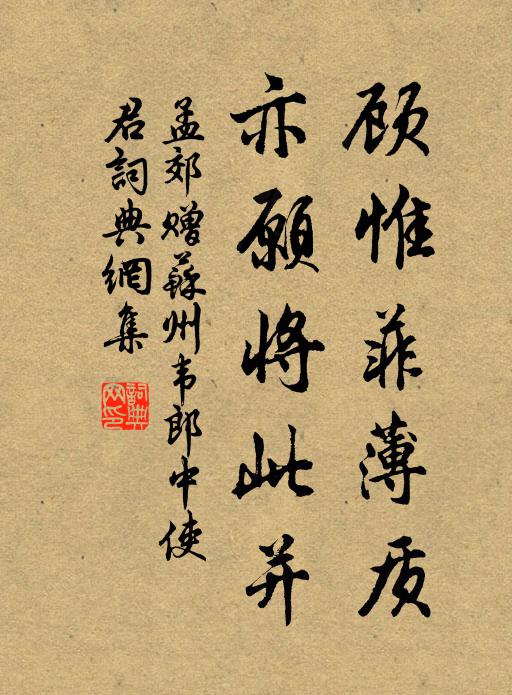 顾惟菲薄质
亦願将此并
孟郊赠蘇州韦郎中使
君詞典網集
詞典
网印